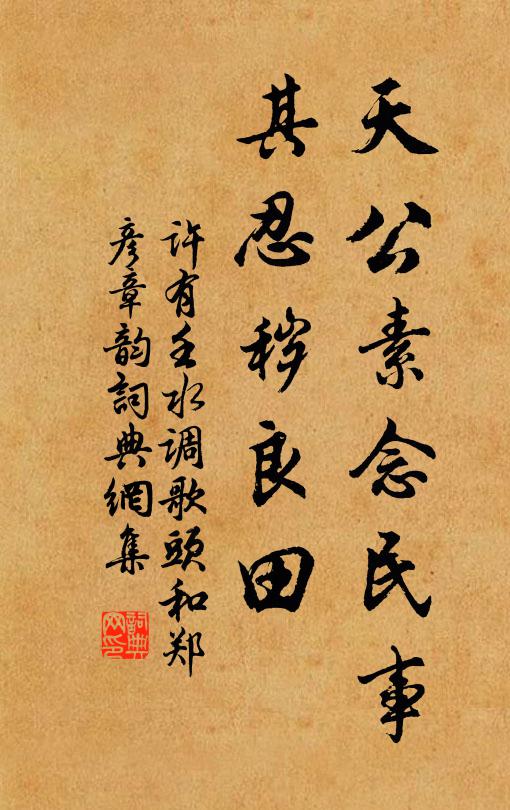 天公素念民事
其忍秽良田
许有壬水调歌头和郑
彦章韵词典網集
詞典網印